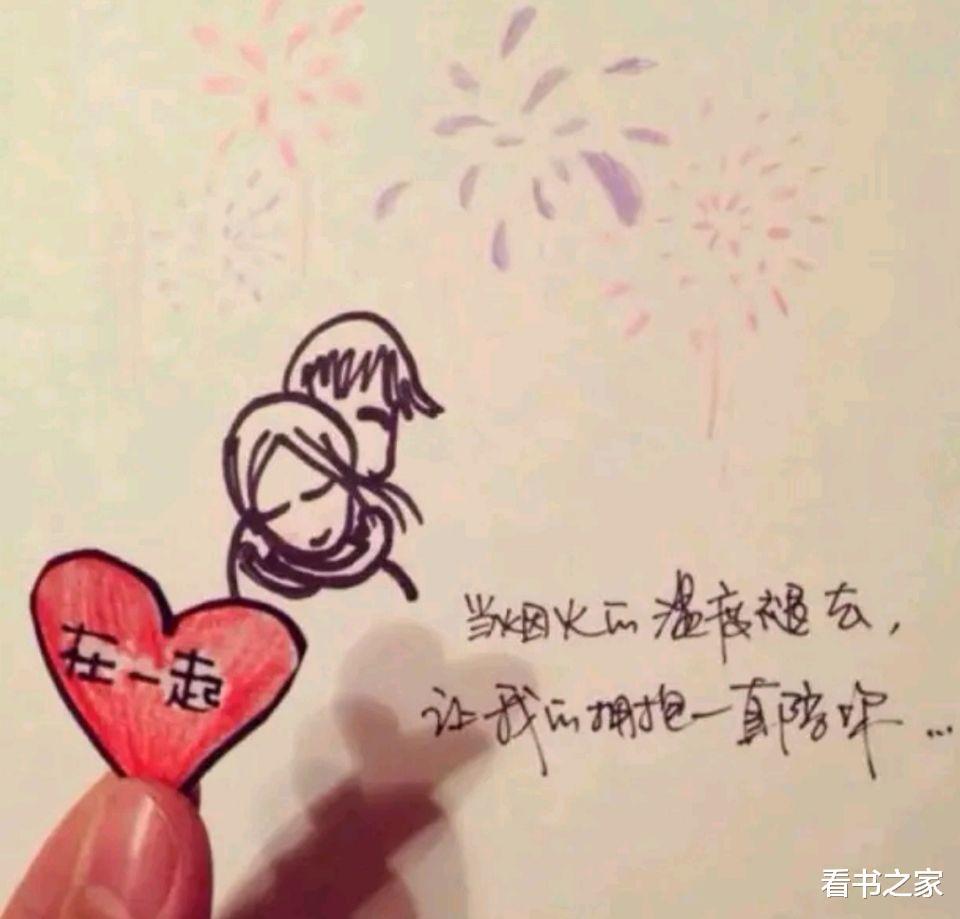 在一起
当烟火的温度褪去,
让我的拥抱一直陪你...
看书之家